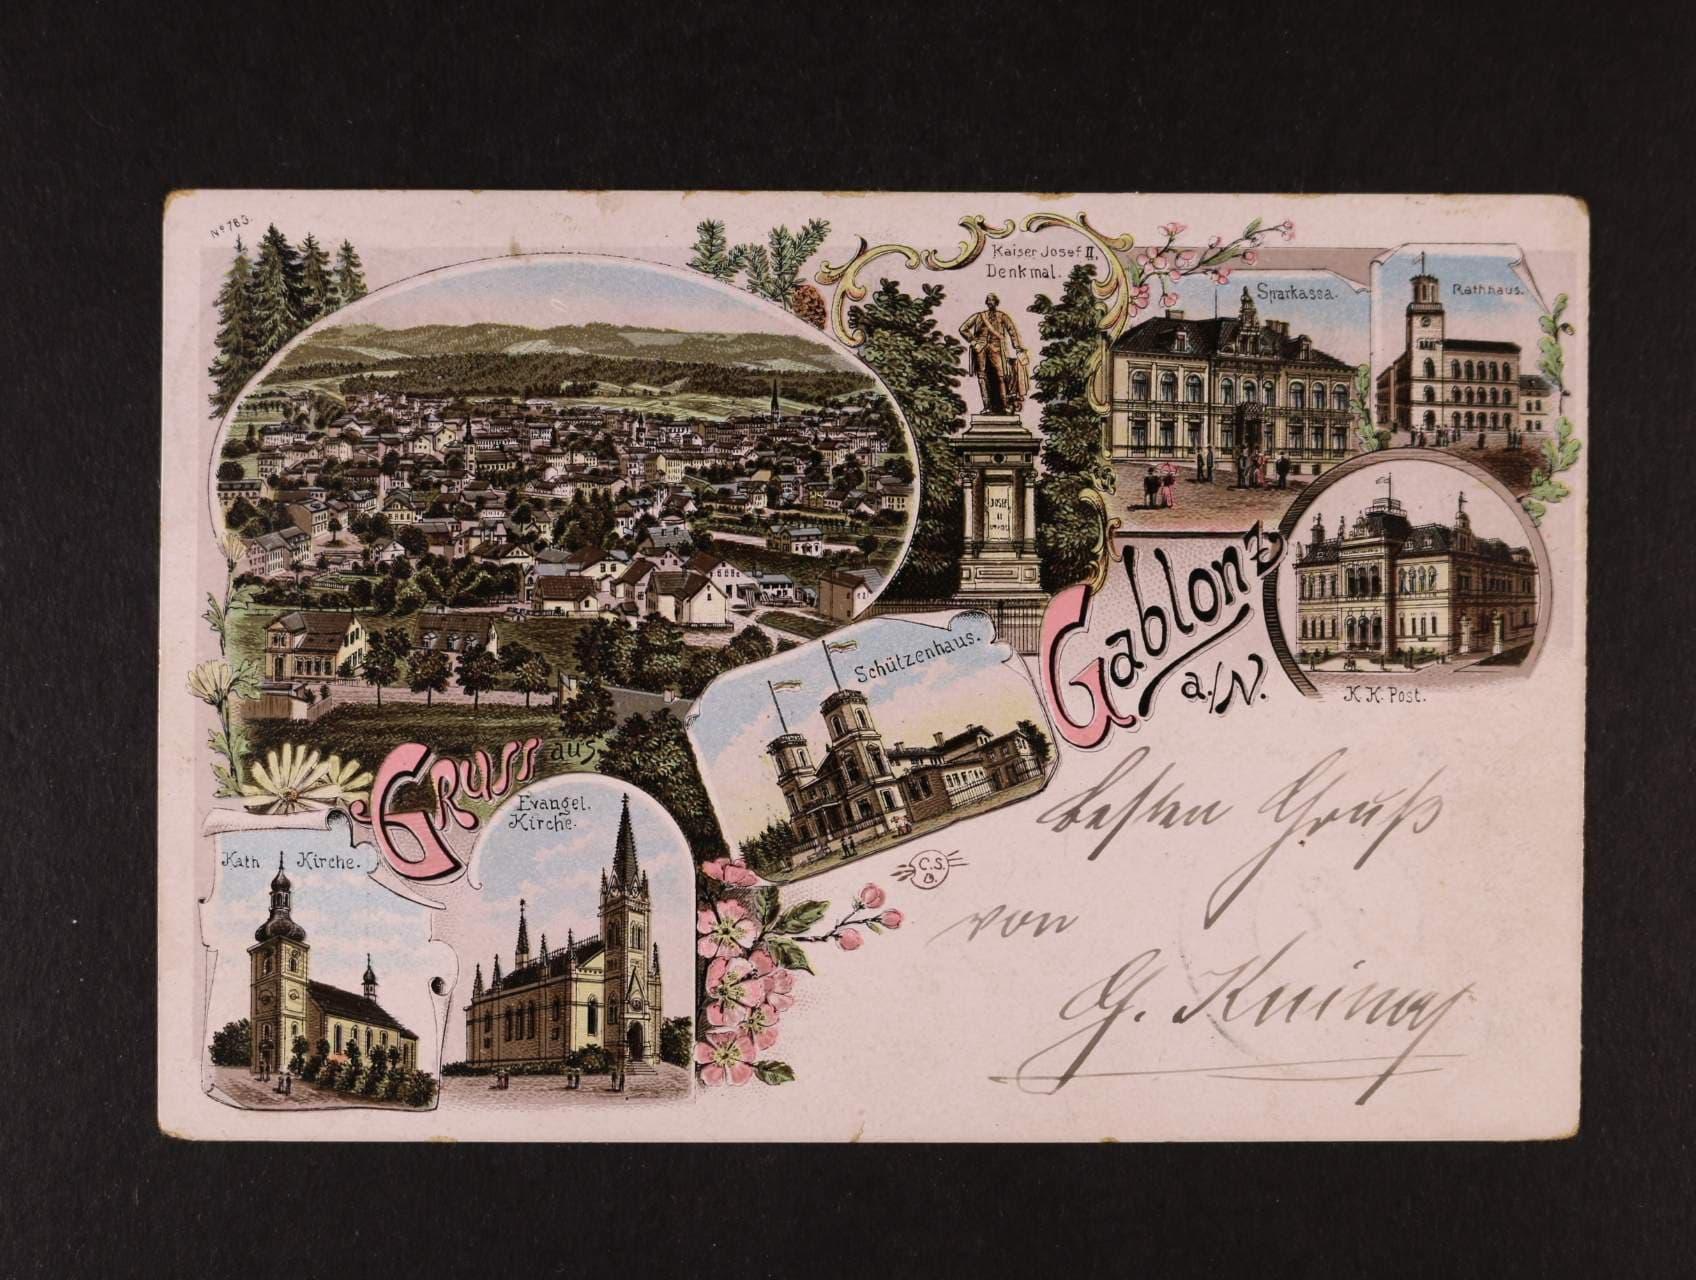 No 783.
Kaiser Josef II,
Denkmal.
Sparkassa.
Rathhaus.
JOSEF
II
Gablonz
a./N.
K. K. Post.
Schützenhaus.
Gruss aus
Evangel.
Kirche.
Kath Kirche.
C.S.
D.
besten Gruß
von
G.